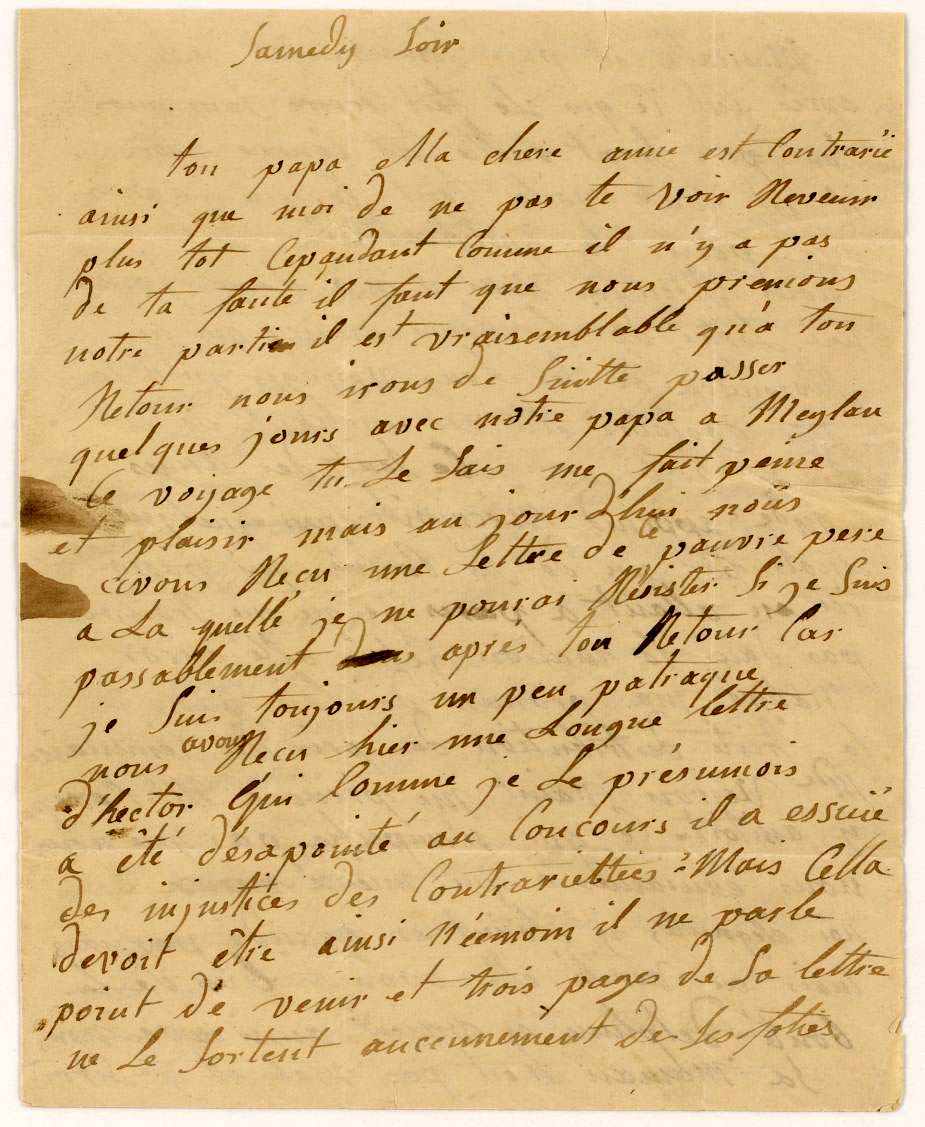 Samedy Soir
ton papa Ma chere amie est Contrarié
ainsi que moi de ne pas te voir Revenir
plus tot Cepandant Comme il n'y a pas
de ta faute il faut que nous prenions
notre partie il est vraisemblable qu'a ton
Retour nous irons de Suitte passer
quelques jours avec notre papa a Meylan
Ce voyage tu Le Sais me fait peine
et plaisir mais au jour d'hui nous
avons Reçu une Lettre de ce pauvre pere
a La quelle je ne pourai Résister Si je Suis
passablement apres ton Retour Car
je Suis toujours un peu patraque
nous avons Reçu hier une Longue lettre
d'hector Qui Comme je Le présumois
a été désapointé au Concours il a essuié
des injustices des Contrariettées Mais Cella
devoit être ainsi Néemoin il ne parle
point de venir et trois pages de Sa lettre
ne Le Sortent auccunement de Ses folies